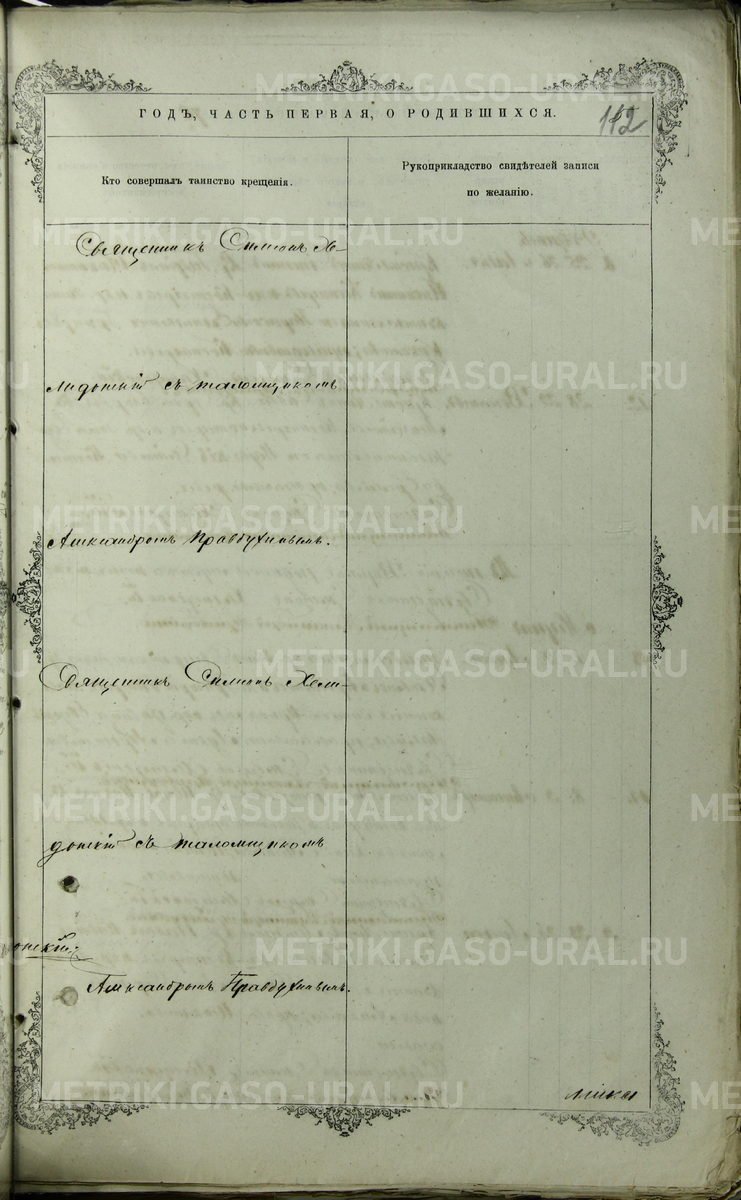 ГОДЪ, ЧАСТЬ ПЕРВАЯ, О РОДИВШИХСЯ.
112
Кто совершалъ таинство крещенія.
Рукоприкладство свидѣтелей записи
по желанію.
Священникъ Симеонъ Хе-
лидонскій съ псаломщикомъ
Александромъ Правдухинымъ.
Священникъ Симеонъ Хели-
донскій съ псаломщикомъ
онскій;
Александромъ Правдухинымъ.
METRIKI.GASO-URAL.RU